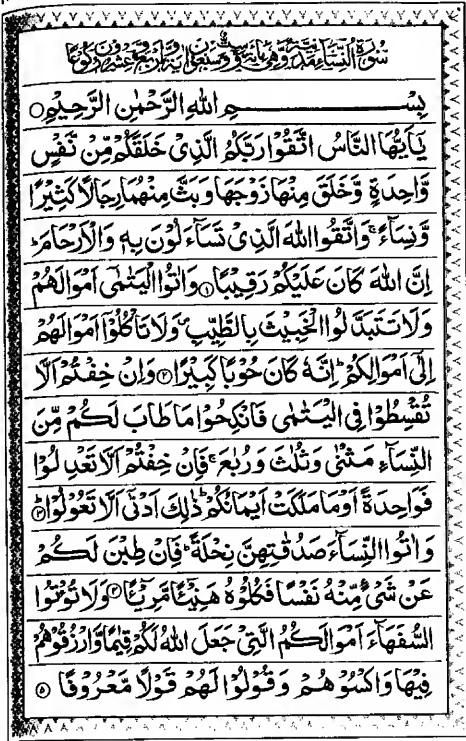 سورة النساء مدنية وهي مائة وست وسبعون اية واربع وعشرون ركوعا
بِسْمِ اللهِ الرَّحْمٰنِ الرَّحِيْمِ
يٰۤاَيُّهَا النَّاسُ اتَّقُوْا رَبَّكُمُ الَّذِيْ خَلَقَكُمْ مِّنْ نَّفْسٍ
وَّاحِدَةٍ وَّخَلَقَ مِنْهَا زَوْجَهَا وَبَثَّ مِنْهُمَا رِجَالًا كَثِيْرًا
وَّنِسَآءً ۚ وَاتَّقُوا اللهَ الَّذِيْ تَسَآءَلُوْنَ بِهٖ وَالْاَرْحَامَ ؕ
اِنَّ اللهَ كَانَ عَلَيْكُمْ رَقِيْبًا ۝۱ وَاٰتُوا الْيَتٰمٰۤى اَمْوَالَهُمْ
وَلَا تَتَبَدَّلُوا الْخَبِيْثَ بِالطَّيِّبِ ۪ وَلَا تَاْكُلُوْۤا اَمْوَالَهُمْ
اِلٰۤى اَمْوَالِكُمْ ؕ اِنَّهٗ كَانَ حُوْبًا كَبِيْرًا ۝۲ وَاِنْ خِفْتُمْ اَلَّا
تُقْسِطُوْا فِي الْيَتٰمٰى فَانْكِحُوْا مَا طَابَ لَكُمْ مِّنَ
النِّسَآءِ مَثْنٰى وَثُلٰثَ وَرُبٰعَ ۚ فَاِنْ خِفْتُمْ اَلَّا تَعْدِلُوْا
فَوَاحِدَةً اَوْ مَا مَلَكَتْ اَيْمَانُكُمْ ؕ ذٰلِكَ اَدْنٰۤى اَلَّا تَعُوْلُوْا ۝۳
وَاٰتُوا النِّسَآءَ صَدُقٰتِهِنَّ نِحْلَةً ؕ فَاِنْ طِبْنَ لَكُمْ
عَنْ شَيْءٍ مِّنْهُ نَفْسًا فَكُلُوْهُ هَنِيْٓئًا مَّرِيْٓئًا ۝۴ وَلَا تُؤْتُوا
السُّفَهَآءَ اَمْوَالَكُمُ الَّتِيْ جَعَلَ اللهُ لَكُمْ قِيٰمًا وَّارْزُقُوْهُمْ
فِيْهَا وَاكْسُوْهُمْ وَقُوْلُوْا لَهُمْ قَوْلًا مَّعْرُوْفًا ۝۵